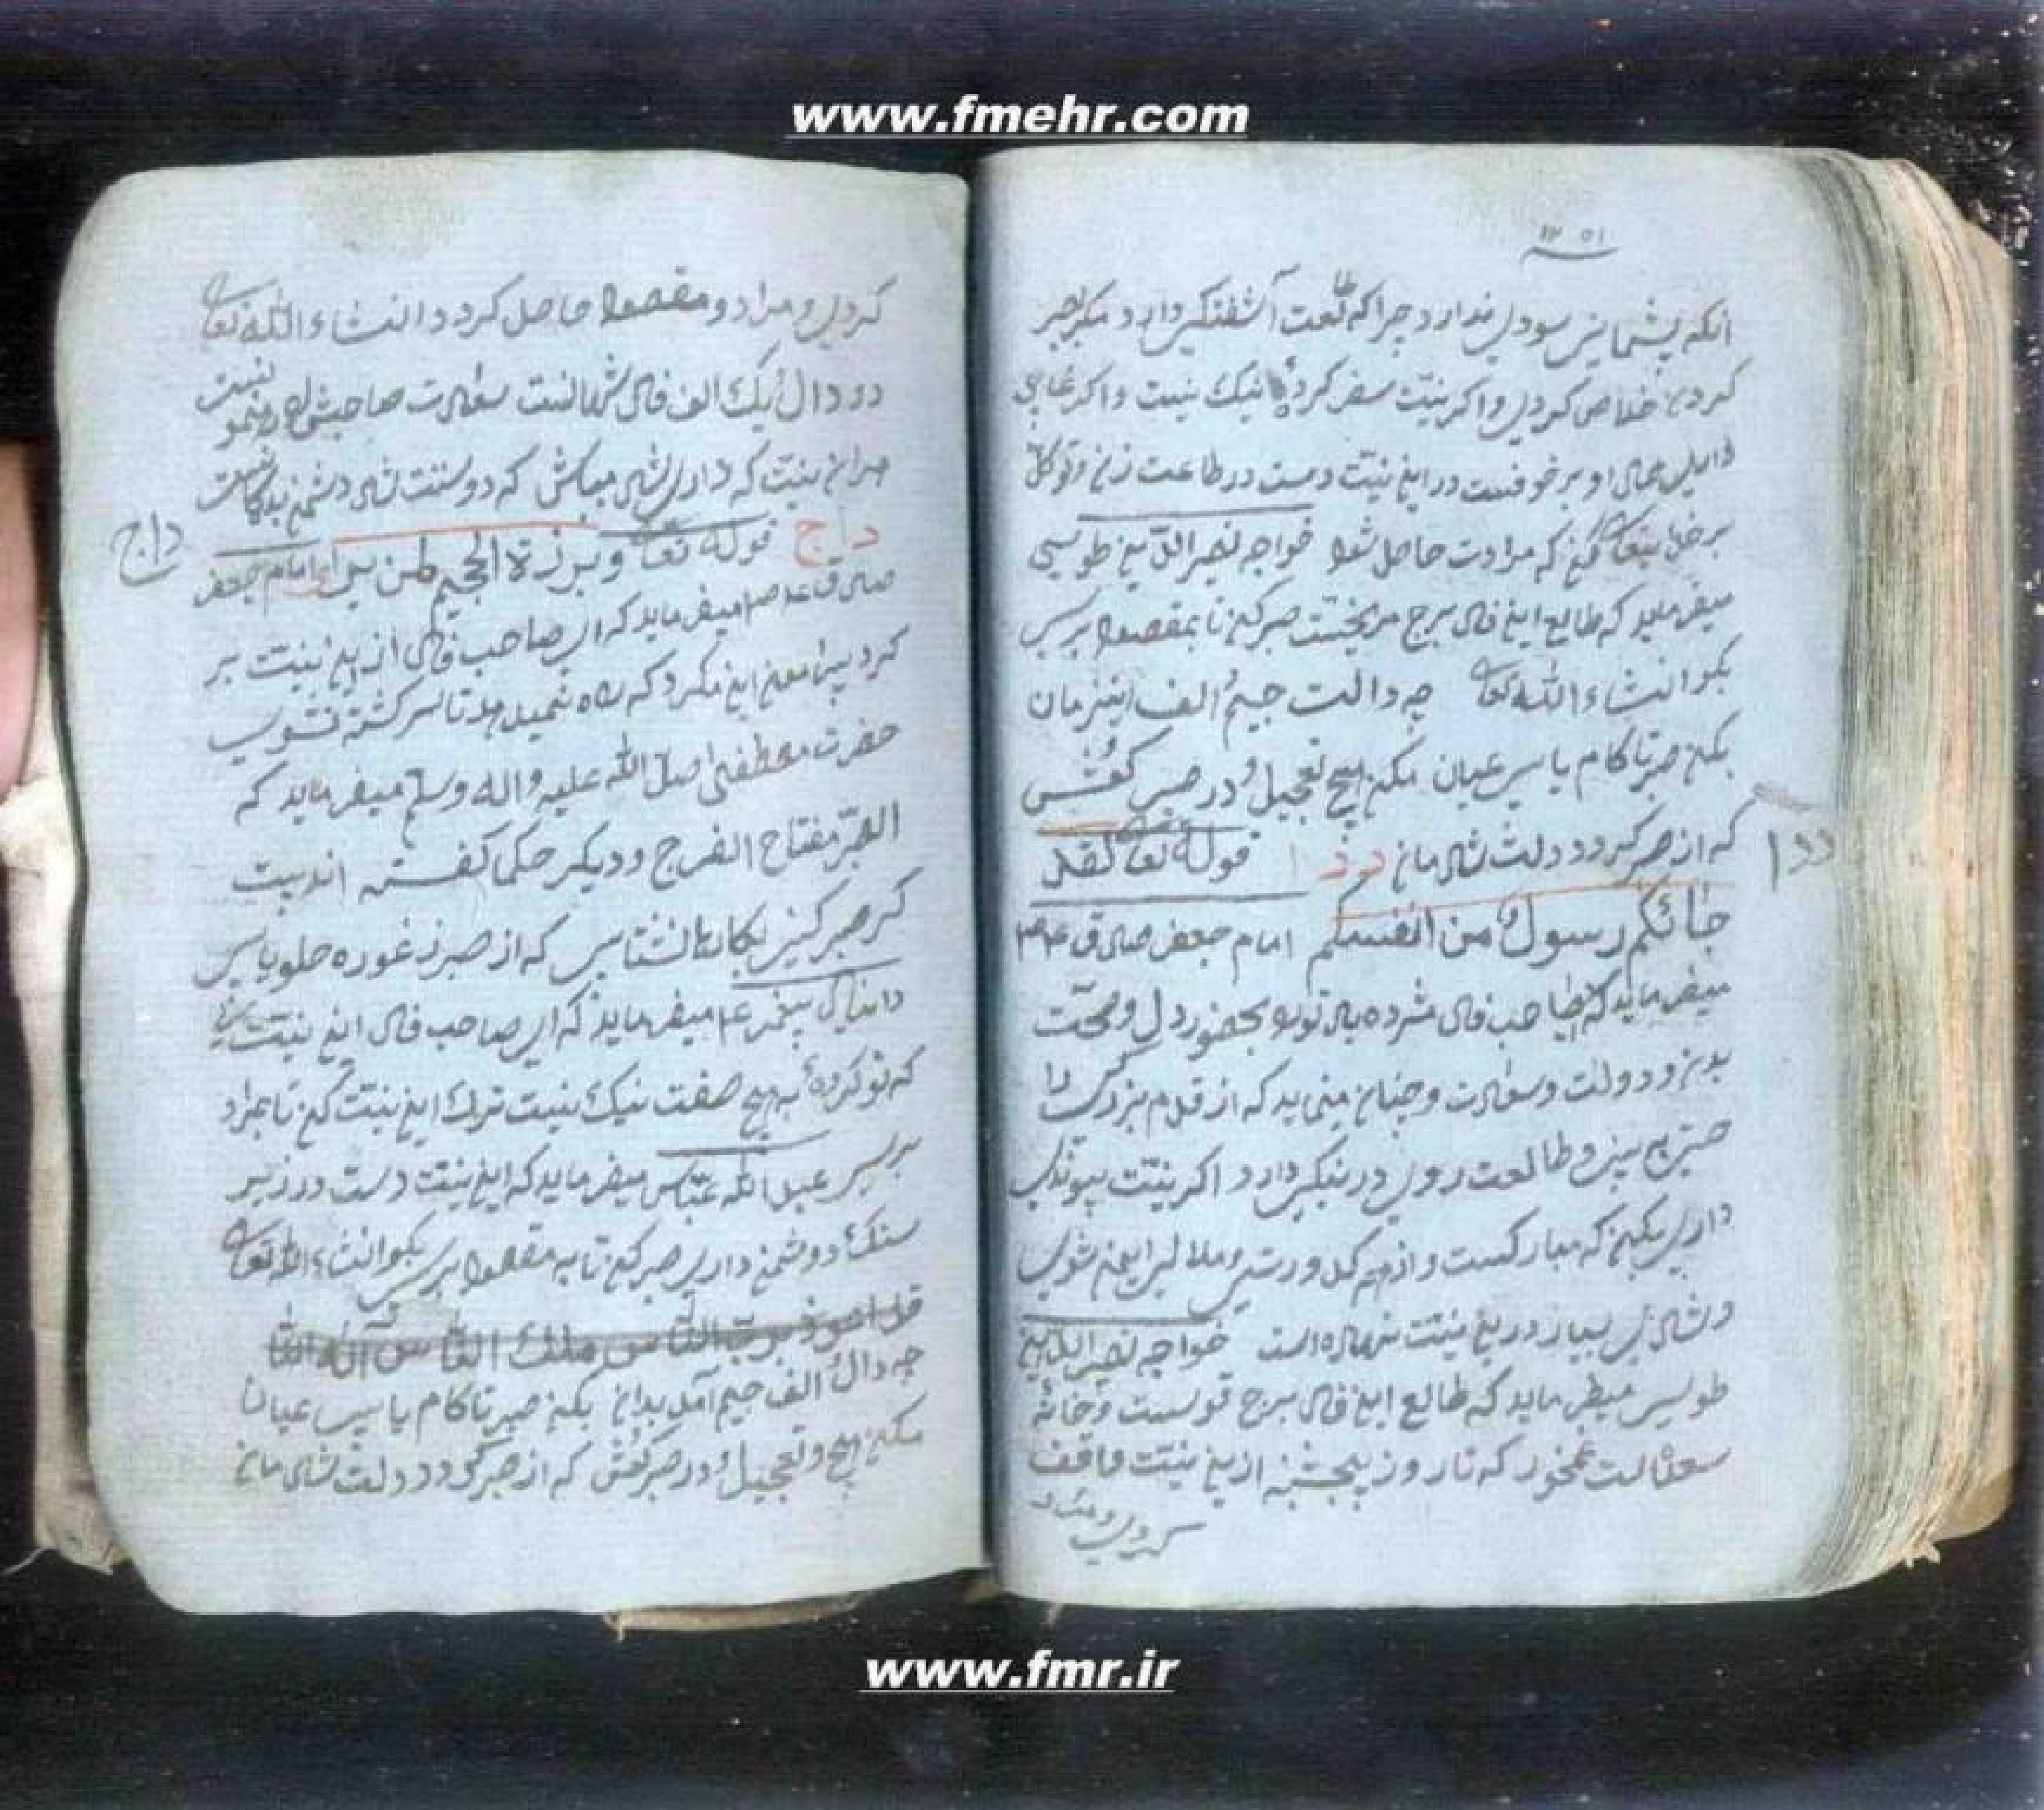 www.fmehr.com
۱۲۵۱
انکه پشمانی سودی ندارد چراکه طالعت آشفتکی دارد مکر بصبر
کردن خلاص کردی واکر نیت سفر کردهٔ نیک نیست واکر غایبی
داری او برخوفست در این نیت دست در طاعت زن وتوکل
بر خدایتعالی کن که مرادت حاصل شود خواجه نصیر الدین طوسی
میفرماید که طالع این فال برج مریخست صبر کن تا بمقصود برسی
بکو انشاء الله تعالی چه دالت جیم الف این زمان
بکن صبر تا کام یابی عیان مکن هیچ تعجیل و در صبر کوش
که از صبر کردد دلت شادمان د د ا قوله تعالی لقد
ددا
جائکم رسول من انفسکم امام جعفر صادق ع
میفرماید که ای صاحب فال مژده باد تورا بحضور دل وصحت
بدن و دولت وسعادت وچنان مینماید که از قدم بزرگی
خیر به بینی و طالعت روی در نیکی دارد اکر نیت پیوندی
داری بکن که مبارکست و از همه کل ورتی وملالی ایمن شوی
وشادی بسیار در این نیت نهاده است خواجه نصیر الدین
طوسی میفرماید که طالع این فال برج قوسست وخانهٔ
سعدالت غمخور که تا روز پنجشنبه از این نیت واقف
کردی و مراد
کردی و مراد و مقصود حاصل کردد انشاء الله تعالی
دو دال یک الف فال شهانست سعادت صاحبش را رهنمونست
هر آن نیت که داری شاد میباش که دوستت شاد دشمن بدکانست
د ا ج قوله تعالی وبرزة الجحیم لمن یری امام جعفر
داج
صادق ع میفرماید که ای صاحب فال از این نیت بر
کرد پیرامن این مکرد که راه نمیدهد تا سرکشته نشوی
حضرت مصطفی صلی الله علیه واله وسلم میفرماید که
الصبر مفتاح الفرج ودیکر حکما کفته اند بیت
کر صبر کنی بکارها نشتابی که از صبر ز غوره حلو یابی
دانیال پیغمبر ع میفرماید که ای صاحب فال این نیت
که تو کردهٔ به هیچ صفت نیک نیست ترک این نیت کن تا بمراد
برسی عبد الله عباس میفرماید که این نیت دست در زیر
سنک دوشمن داری صبر کن تا به مقصود برسی بکو انشاء الله تعالی
قل اعوذ برب الناس ملک الناس اله الناس
چه دال الف جیم آمد بدان بکن صبر تا کام یابی عیان
مکن هیچ و تعجیل و در صبر کوش که از صبر کردد دلت شادمان
www.fmr.ir